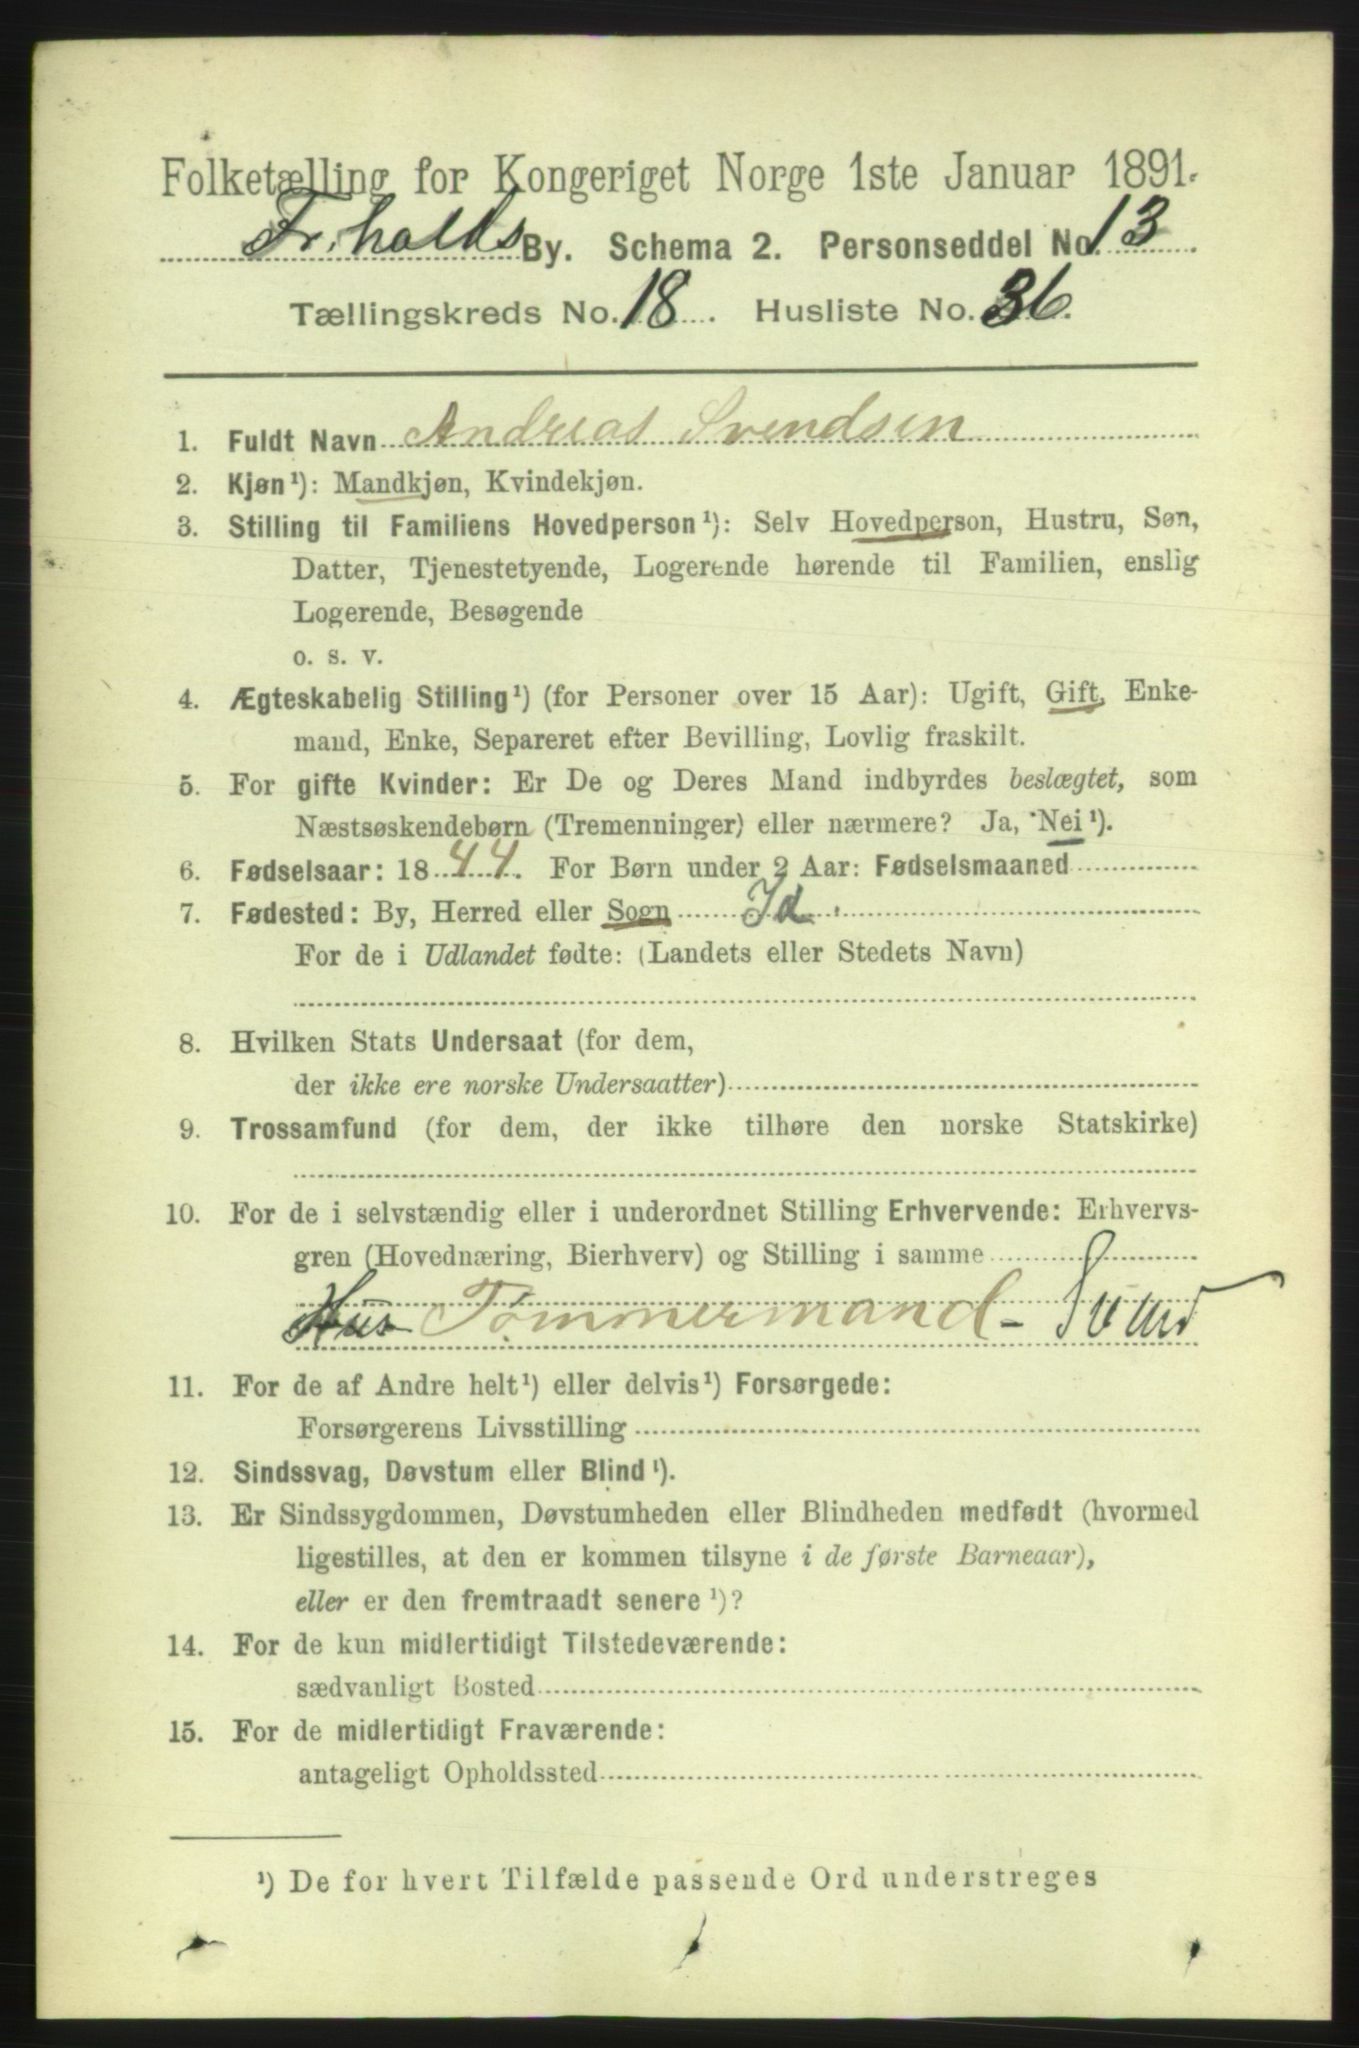 Folketælling for Kongeriget Norge 1ste Januar 1891.
Fr.halds By. Schema 2. Personseddel No. 13
Tællingskreds No. 18. Husliste No. 36.
1. Fuldt Navn Andreas Svendsen
2. Kjøn¹): Mandkjøn, Kvindekjøn.
3. Stilling til Familiens Hovedperson¹): Selv Hovedperson, Hustru, Søn,
Datter, Tjenestetyende, Logerende hørende til Familien, enslig
Logerende, Besøgende
o. s. v.
4. Ægteskabelig Stilling¹) (for Personer over 15 Aar): Ugift, Gift, Enke-
mand, Enke, Separeret efter Bevilling, Lovlig fraskilt.
5. For gifte Kvinder: Er De og Deres Mand indbyrdes beslægtet, som
Næstsøskendebørn (Tremenninger) eller nærmere? Ja, Nei¹).
6. Fødselsaar: 1844. For Børn under 2 Aar: Fødselsmaaned
7. Fødested: By, Herred eller Sogn Id.
For de i Udlandet fødte: (Landets eller Stedets Navn)
8. Hvilken Stats Undersaat (for dem,
der ikke ere norske Undersaatter)
9. Trossamfund (for dem, der ikke tilhøre den norske Statskirke)
10. For de i selvstændig eller i underordnet Stilling Erhvervende: Erhvervs-
gren (Hovednæring, Bierhverv) og Stilling i samme
Hus Tømmermand - Svend
11. For de af Andre helt¹) eller delvis¹) Forsørgede:
Forsørgerens Livsstilling
12. Sindssvag, Døvstum eller Blind¹).
13. Er Sindssygdommen, Døvstumheden eller Blindheden medfødt (hvormed
ligestilles, at den er kommen tilsyne i de første Barneaar),
eller er den fremtraadt senere¹)?
14. For de kun midlertidigt Tilstedeværende:
sædvanligt Bosted
15. For de midlertidigt Fraværende:
antageligt Opholdssted
¹) De for hvert Tilfælde passende Ord understreges